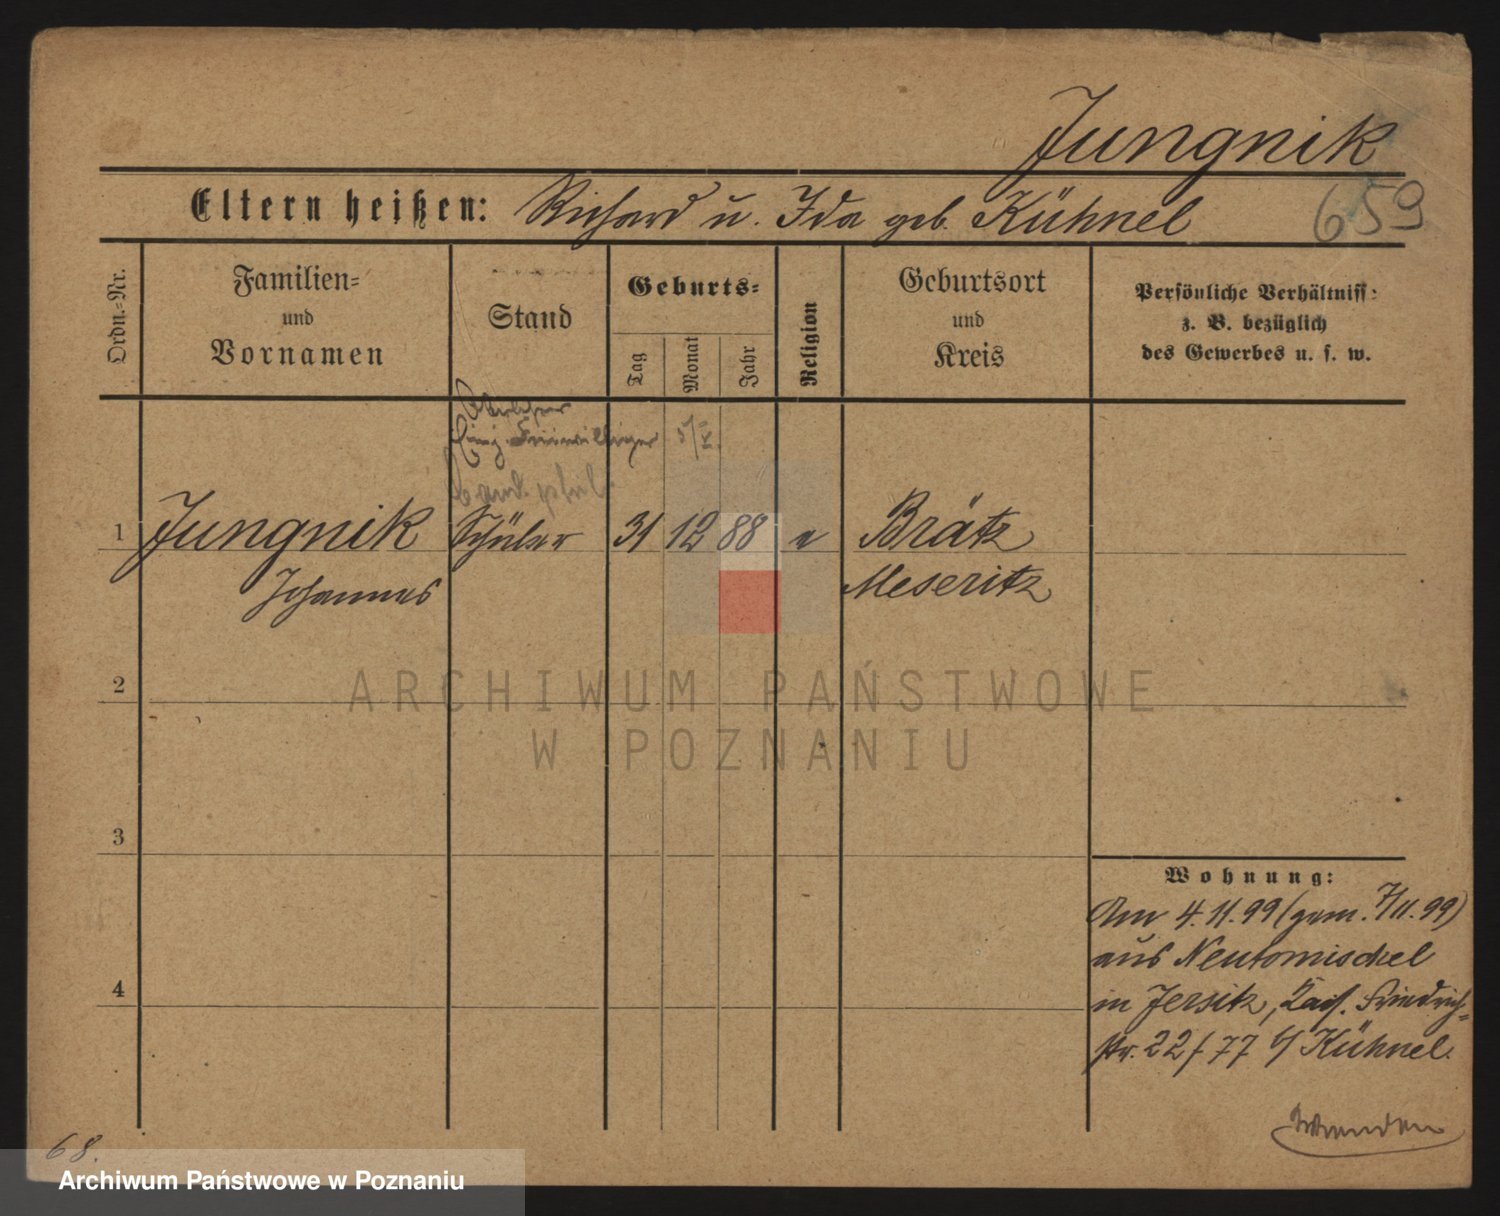 Jungnik
Eltern heißen: Richard u. Ida geb. Kühnel
659
Ordn.-Nr.
Familien- und Vornamen
Stand
Geburts-
Tag
Monat
Jahr
Religion
Geburtsort und Kreis
Persönliche Verhältniss: z. B. bezüglich des Gewerbes u. s. w.
Einj. Freiwilliger 5/X
Cand. phil.
1 Jungnik Schüler 31 12 88 e Brätz
Johannes Meseritz
2
3
4
Wohnung:
Am 4.11.99 (gem. 7/11.99)
aus Neutomischel
in Jersitz, Kais. Friedrich-
str. 22/77 b/ Kühnel.
Wenden
68.
ARCHIWUM PAŃSTWOWE
W POZNANIU
Archiwum Państwowe w Poznaniu